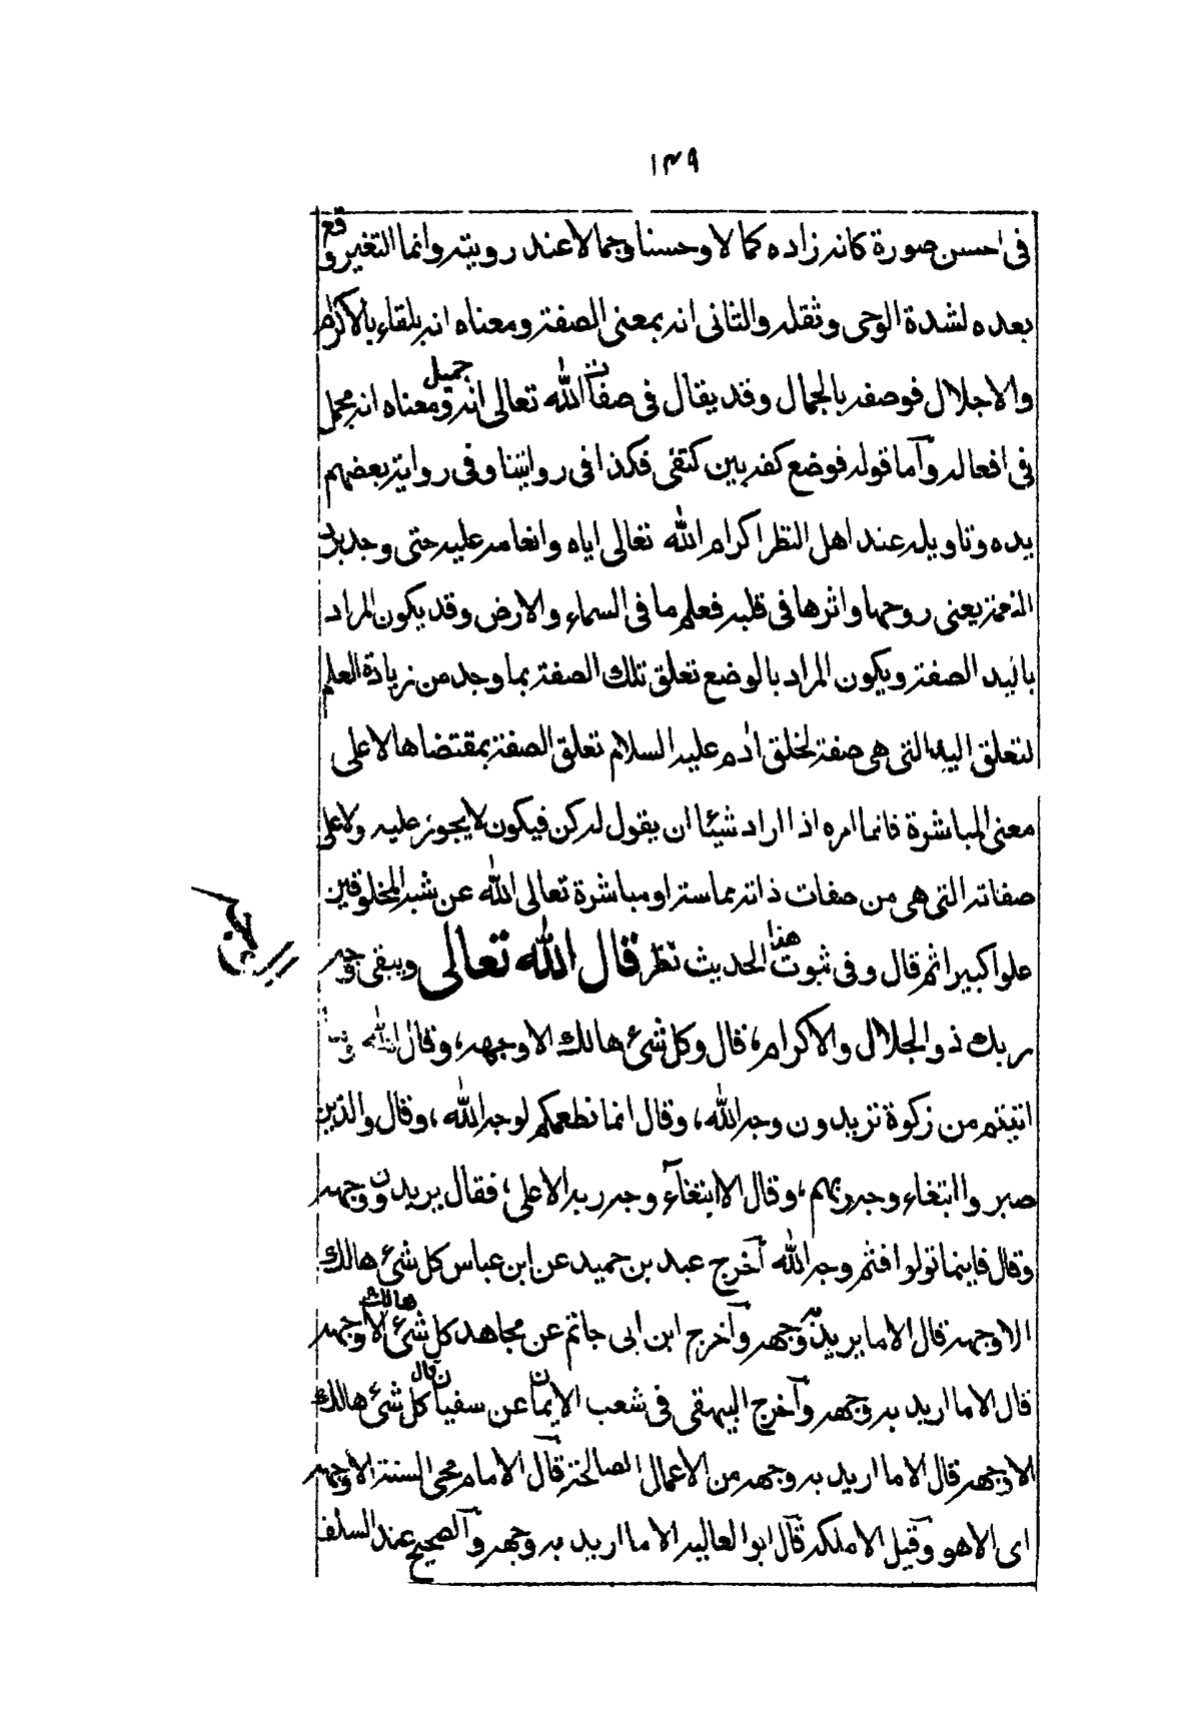 ١٤٩
فى احسن صورة كانه زاده كمالا وحسنا وجمالا عند رويته وانما التغير وقع
بعده لشدة الوحى وثقله والثانى انه بمعنى الصفة ومعناه انه يلقاه بالاكرام
والاجلال فوصفه بالجمال وقد يقال فى صفات الله تعالى انه جميل ومعناه انه مجمل
فى افعاله وآما قوله فوضع كفه بين كتفى فكذا فى روايتنا وفى رواية بعضهم
يده وتاويله عند اهل النظر اكرام الله تعالى اياه وانعامه عليه حتى وجد برد
النعمة يعنى روحها واثرها فى قلبه فعلم ما فى السماء والارض وقد يكون المراد
باليد الصفة ويكون المراد بالوضع تعلق تلك الصفة بما وجد من زيادة العلم
لتعلق اليد التى هى صفة لخلق ادم عليه السلام تعلق الصفة بمقتضاها لا على
معنى المباشرة فانما امره اذا اراد شيئا ان يقول له كن فيكون لا يجوز عليه ولا على
صفاته التى هى من صفات ذاته مماسة او مباشرة تعالى الله عن شبه المخلوقين
علوا كبيرا ثم قال وفى ثبوت هذا الحديث نظر قال الله تعالى ويبقى وجه
ربك ذو الجلال والاكرام، قال وكل شىء هالك الا وجهه، وقال الله وما
اتيتم من زكوة تريدون وجه الله، وقال انما نطعمكم لوجه الله، وقال والذين
صبروا ابتغاء وجه ربهم، وقال الا ابتغآء وجه ربه الاعلى، فقال يريدون وجهه
وقال فاينما تولوا فثم وجه الله آخرج عبد بن حميد عن ابن عباس كل شىء هالك
الا وجهه قال الا ما يريد به وجهه وآخرج ابن ابى حاتم عن مجاهد كل شىء هالك الا وجهه
قال الا ما اريد به وجهه وآخرج البيهقى فى شعب الايمان عن سفيان قال كل شىء هالك
الا وجهه قال الا ما اريد به وجهه من الاعمال الصالحة قآل الامام محى السنة الا وجهه
اى الا هو وقيل الا ملكه قآل ابو العاليه الا ما اريد به وجهه وآلصحيح عند السلف